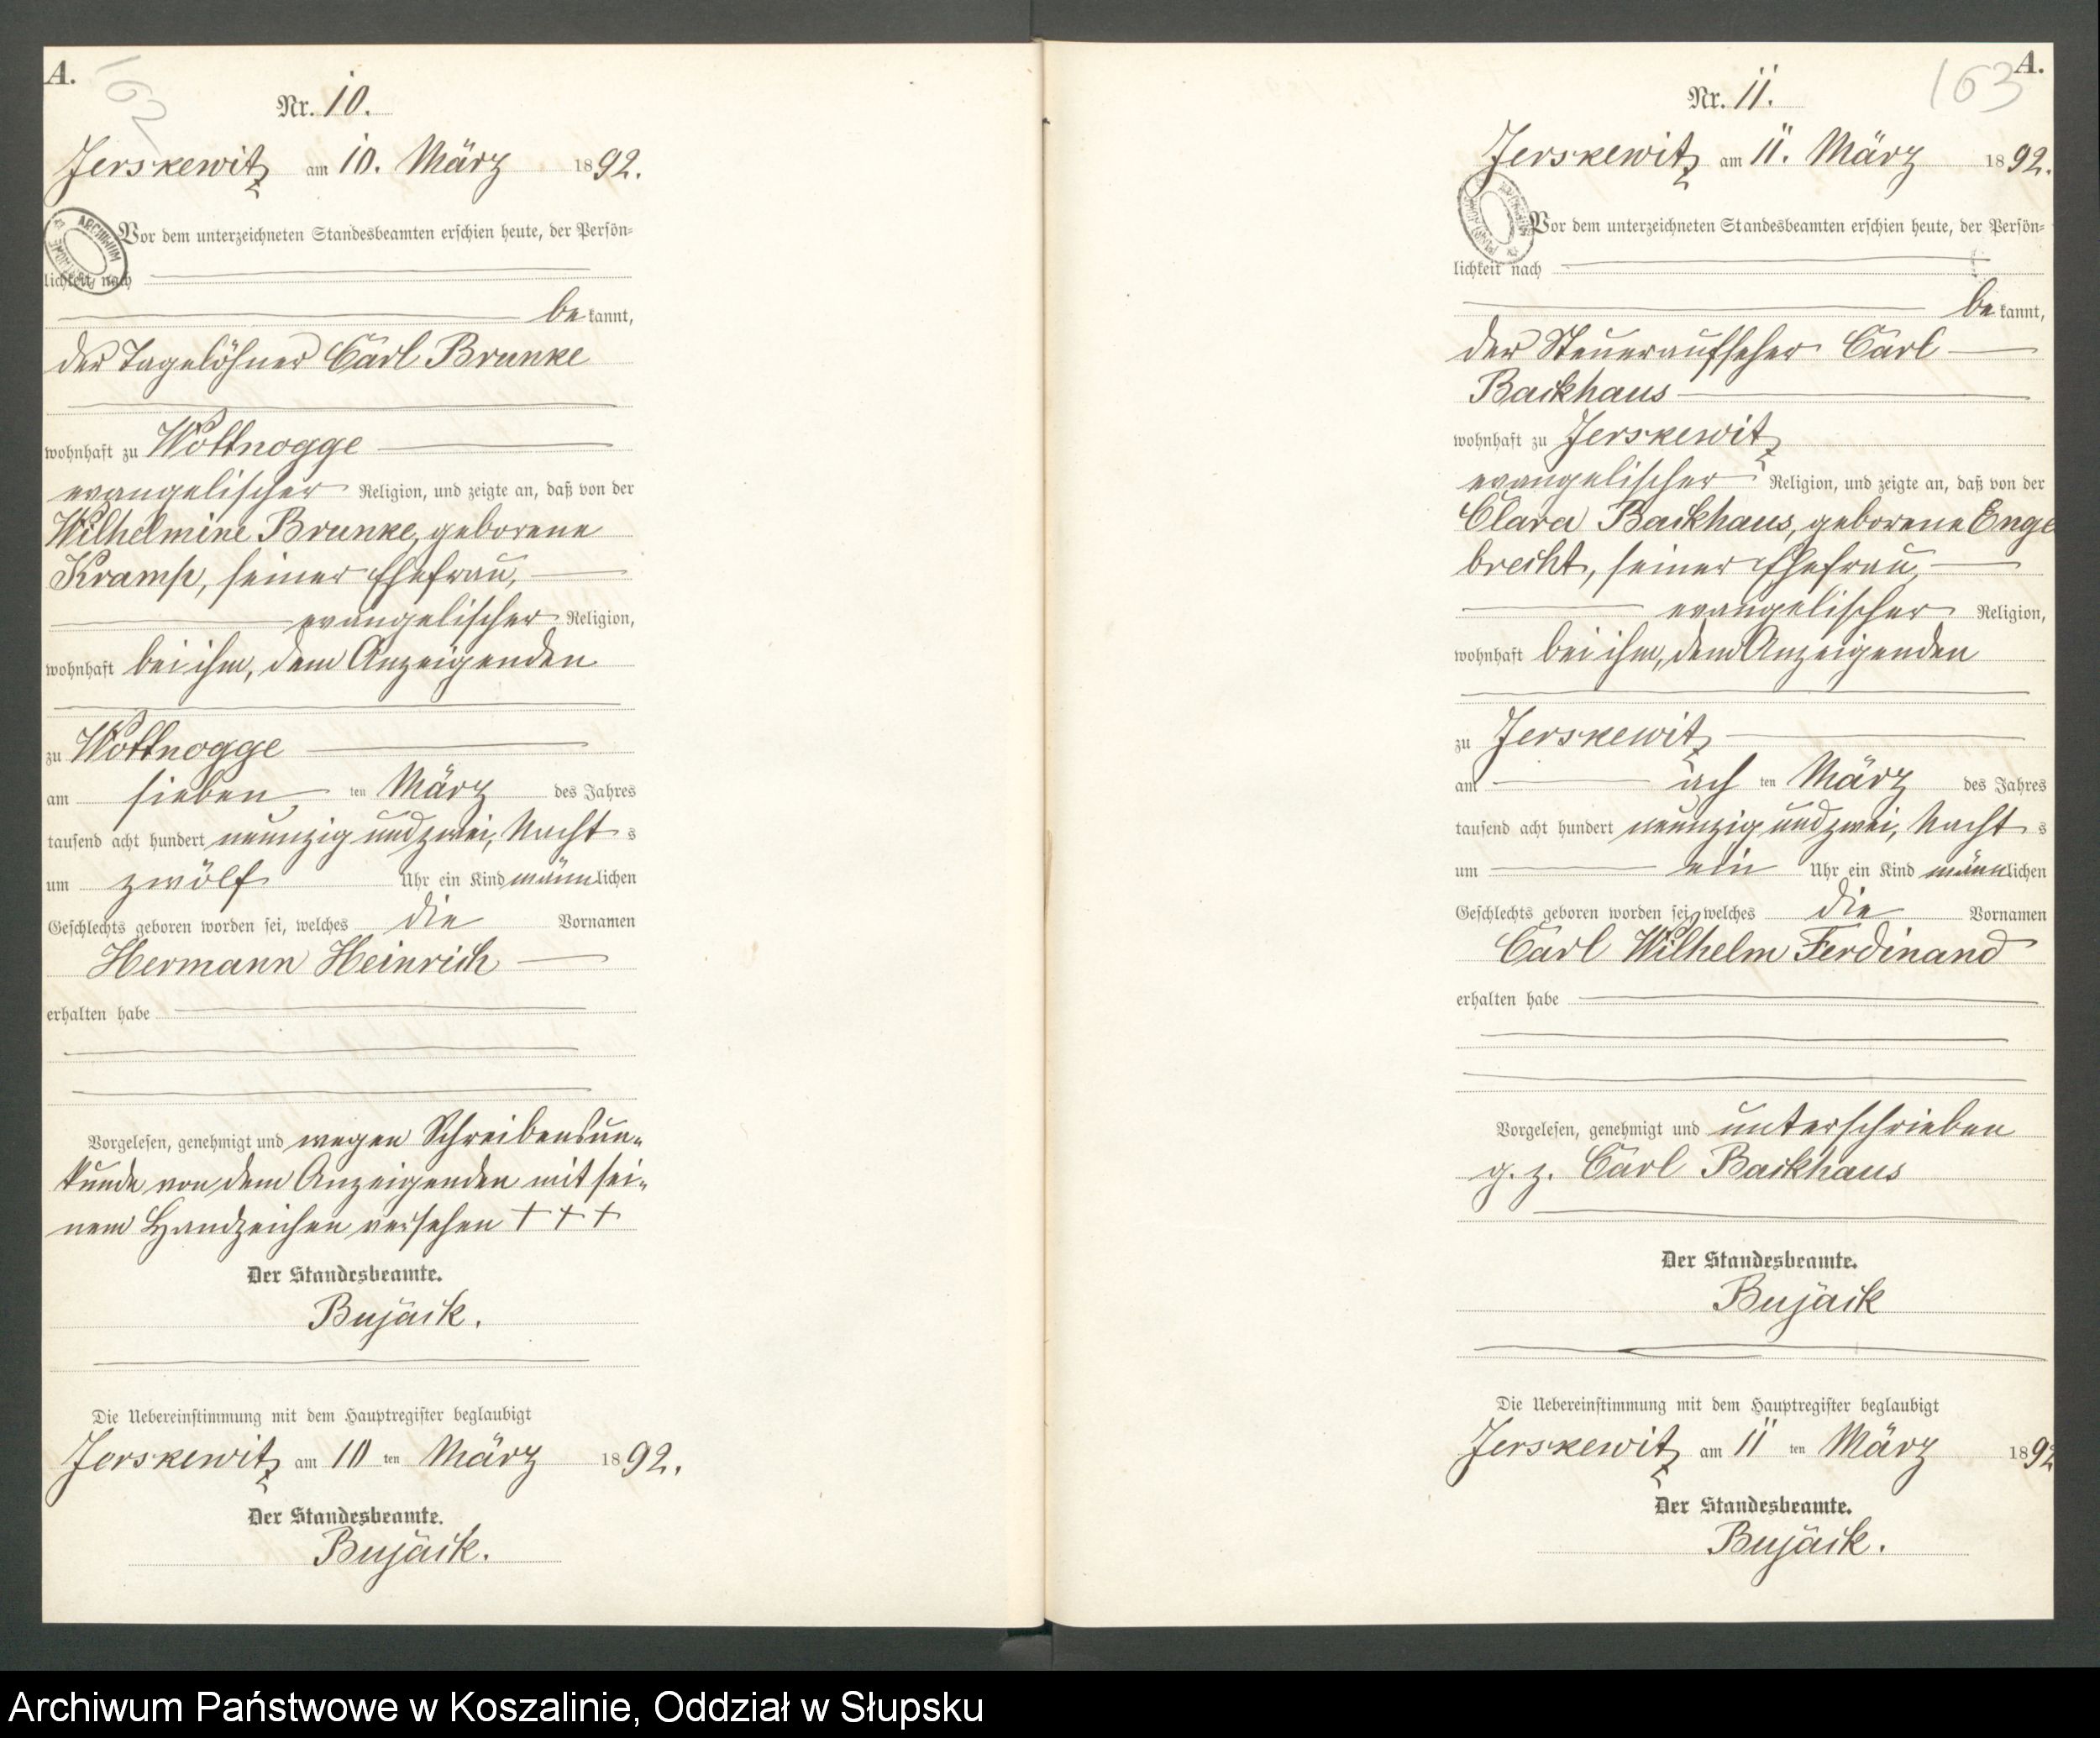 A.
162
Nr. 10.
Jerskewitz am 10. März 1892.
Vor dem unterzeichneten Standesbeamten erschien heute, der Persön-
lichkeit nach
be kannt,
der Tagelöhner Carl Brunke
wohnhaft zu Wottnogge
evangelischer Religion, und zeigte an, daß von der
Wilhelmine Brunke, geborene
Kramp, seiner Ehefrau,
evangelischer Religion,
wohnhaft bei ihm, dem Anzeigenden
zu Wottnogge
am sieben ten März des Jahres
tausend acht hundert neunzig und zwei, Nacht s
um zwölf Uhr ein Kind männlichen
Geschlechts geboren worden sei, welches die Vornamen
Hermann Heinrich
erhalten habe
Vorgelesen, genehmigt und wegen Schreibensun-
kunde von dem Anzeigenden mit sei-
nem Handzeichen versehen + + +
Der Standesbeamte.
Bujack.
Die Uebereinstimmung mit dem Hauptregister beglaubigt
Jerskewitz am 10 ten März 1892.
Der Standesbeamte.
Bujack.
A.
163
Nr. 11.
Jerskewitz am 11. März 1892.
Vor dem unterzeichneten Standesbeamten erschien heute, der Persön-
lichkeit nach
be kannt,
der Steueraufseher Carl
Backhaus
wohnhaft zu Jerskewitz
evangelischer Religion, und zeigte an, daß von der
Clara Backhaus, geborene Enge
brecht, seiner Ehefrau,
evangelischer Religion,
wohnhaft bei ihm, dem Anzeigenden
zu Jerskewitz
am ach ten März des Jahres
tausend acht hundert neunzig und zwei, Nacht s
um ein Uhr ein Kind männlichen
Geschlechts geboren worden sei, welches die Vornamen
Carl Wilhelm Ferdinand
erhalten habe
Vorgelesen, genehmigt und unterschrieben
g. z. Carl Backhaus
Der Standesbeamte.
Bujack
Die Uebereinstimmung mit dem Hauptregister beglaubigt
Jerskewitz am 11 ten März 1892
Der Standesbeamte.
Bujack.
Archiwum Państwowe w Koszalinie, Oddział w Słupsku